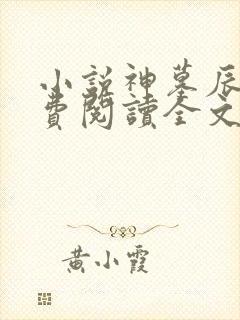 小說神墓辰
費閱讀全文
黃小霞